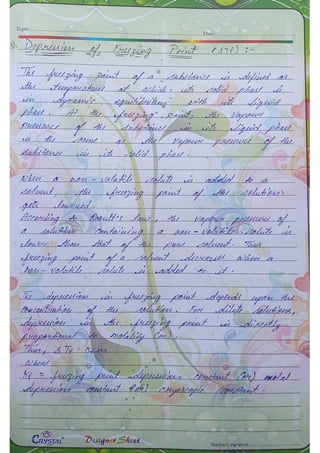 Topic
Date
Depression of Freezing Point (ΔTf) :-
The freezing point of a substance is defined as
the temperature at which its solid phase is
in dynamic equilibrium with its liquid
phase. At the freezing point, the vapour
pressure of the substance in its liquid phase
is the same as the vapour pressure of the
substance in its solid phase.
When a non-volatile solute is added to a
solvent, the freezing point of the solution
gets lowered.
According to Raoult's law, the vapour pressure of
a solution containing a non-volatile solute is
lower than that of the pure solvent. Thus
freezing point of a solvent decreases when a
non-volatile solute is added to it.
The depression in freezing point depends upon the
concentration of the solution. For dilute solutions,
depression in the freezing point is directly
proportional to molality (m).
Thus,
Where
Kf = freezing point depression constant (or) molal
depression constant (or) cryoscopic constant.
CRYSTAL Designer Sheet Teacher's Signature